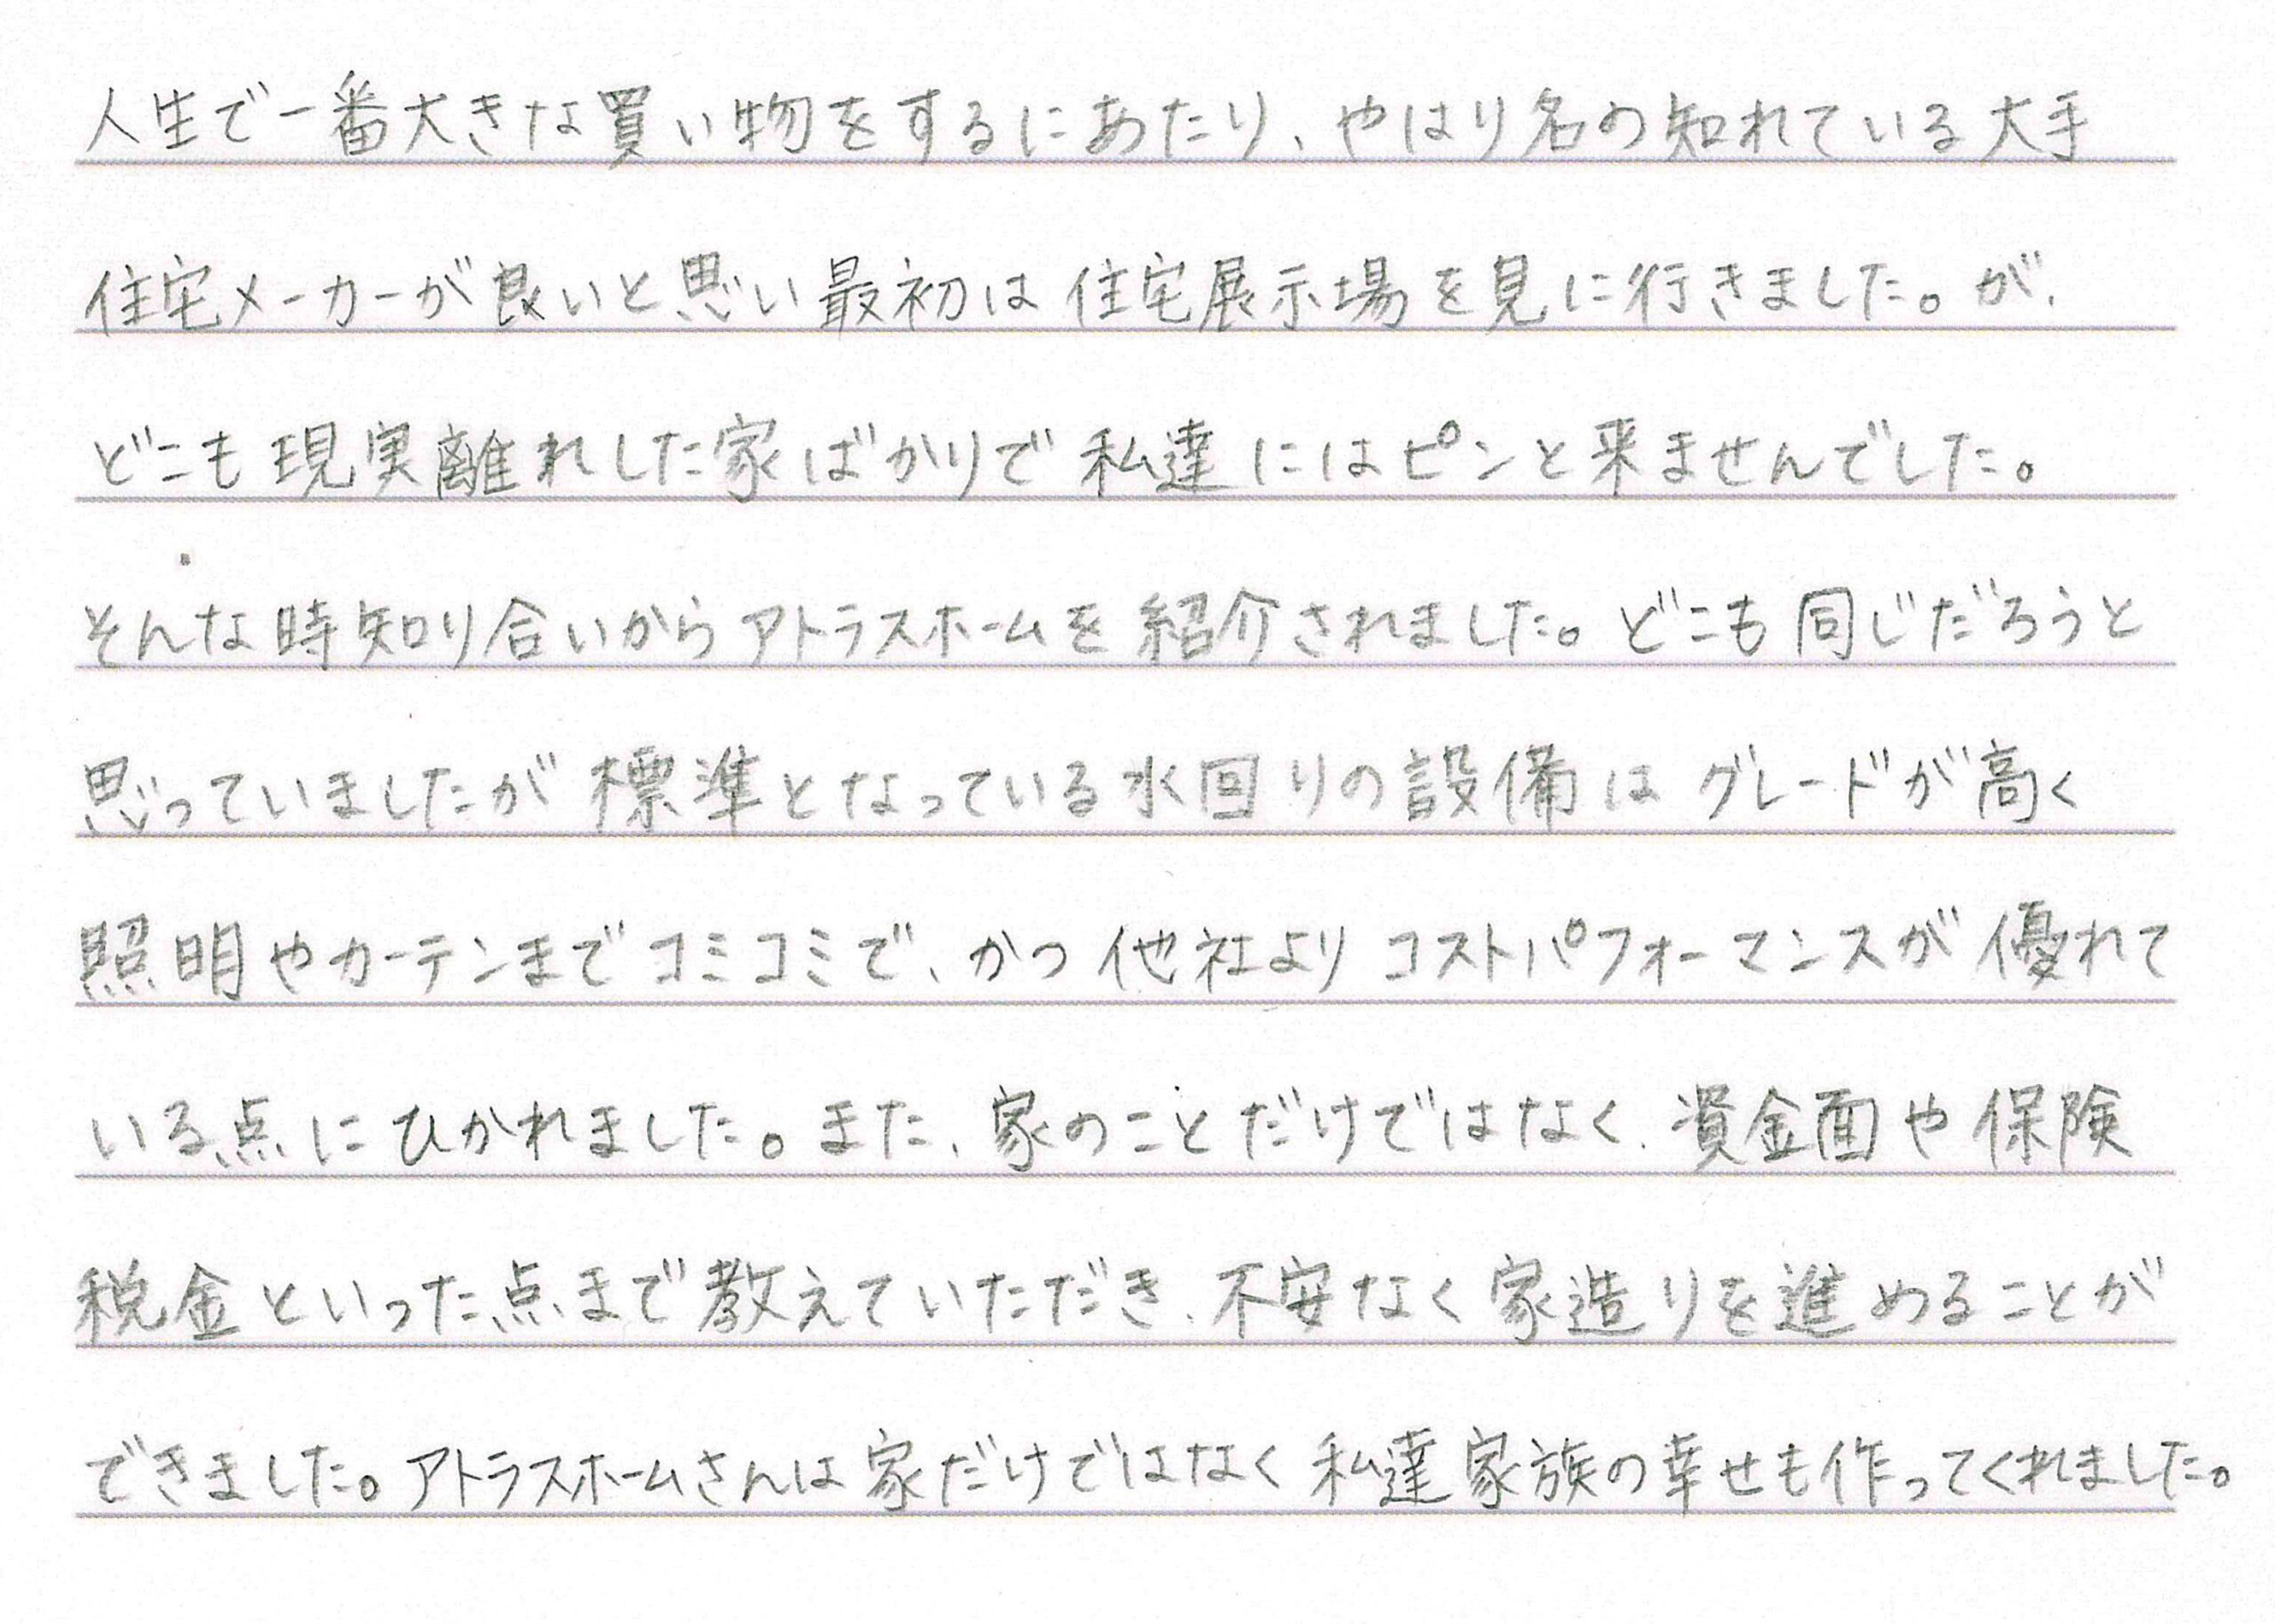 人生で一番大きな買い物をするにあたり、やはり名の知れている大手
住宅メーカーが良いと思い最初は住宅展示場を見に行きました。が、
どこも現実離れした家ばかりで私達にはピンと来ませんでした。
そんな時知り合いからアトラスホームを紹介されました。どこも同じだろうと
思っていましたが標準となっている水回りの設備はグレードが高く
照明やカーテンまでコミコミで、かつ他社よりコストパフォーマンスが優れて
いる点にひかれました。また、家のことだけではなく、資金面や保険
税金といった点まで教えていただき、不安なく家造りを進めることが
できました。アトラスホームさんは家だけではなく私達家族の幸せも作ってくれました。